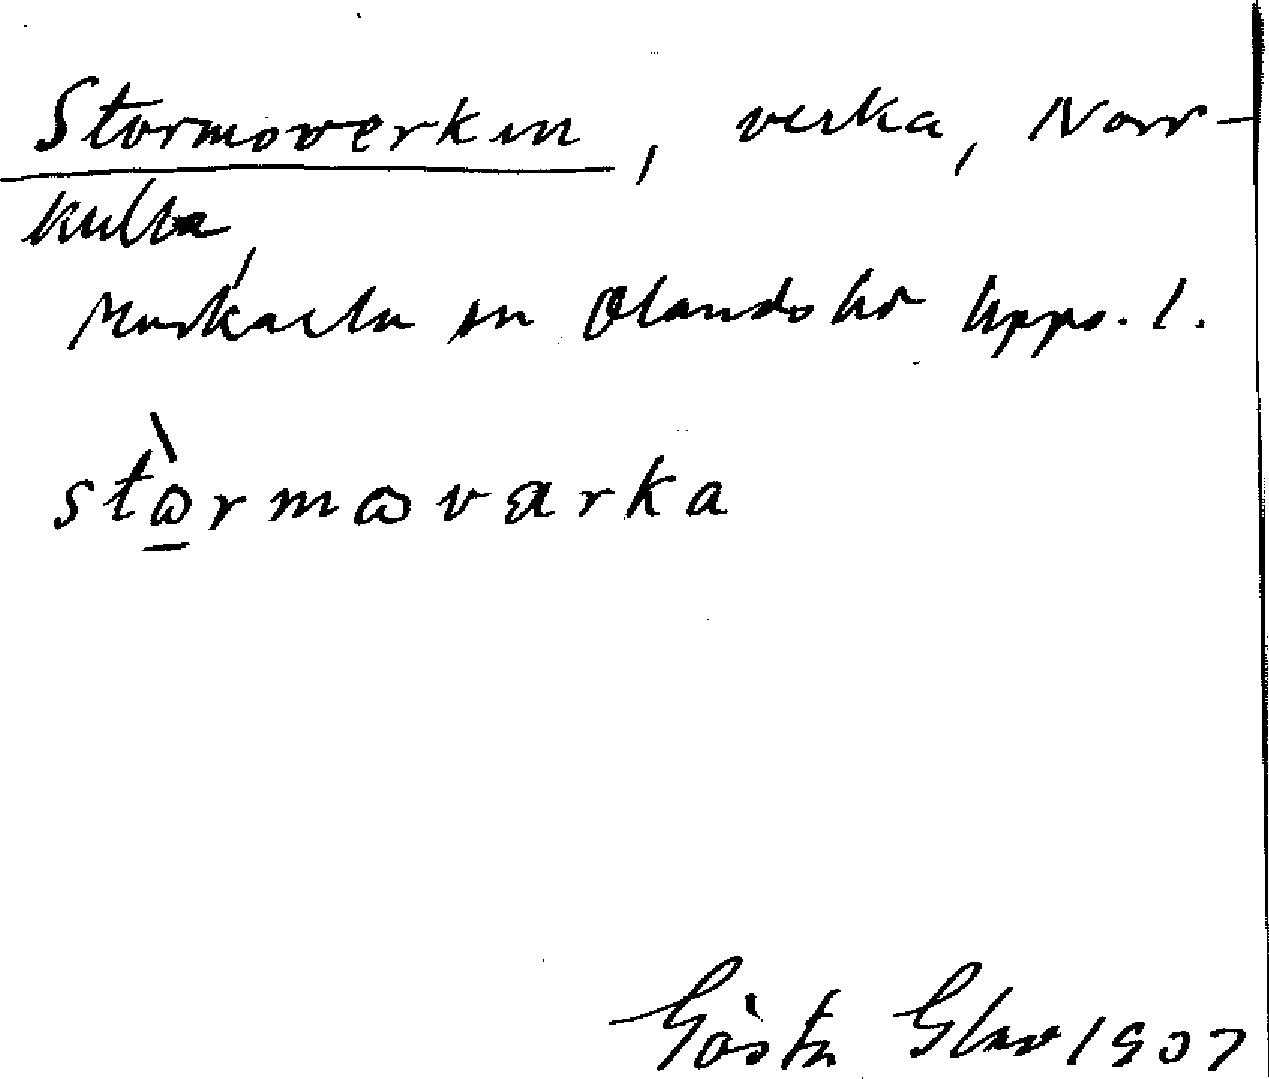 Stormoverken, verka, Norr-
kulla,
Morkarla sn Olands hd Upps. l.
stɷ̀rmɷvarka
Gösta Glas 1907